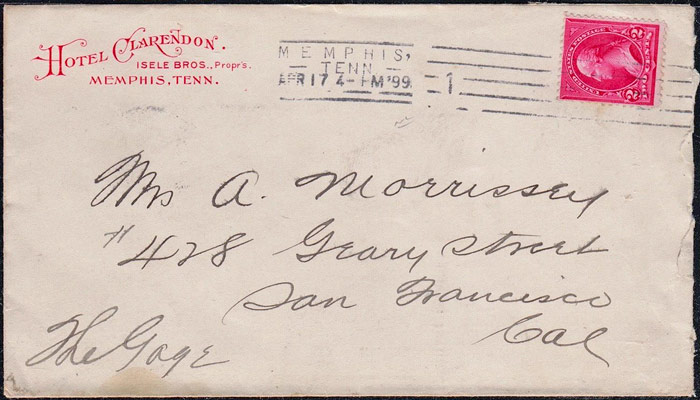 HOTEL CLARENDON.
ISELE BROS., Propr's.
MEMPHIS, TENN.
MEMPHIS,
TENN.
APR 17 4-PM '99
1
2 2
Mrs A. Morrissey
# 428 Geary Street
San Francisco
Cal
The Gage